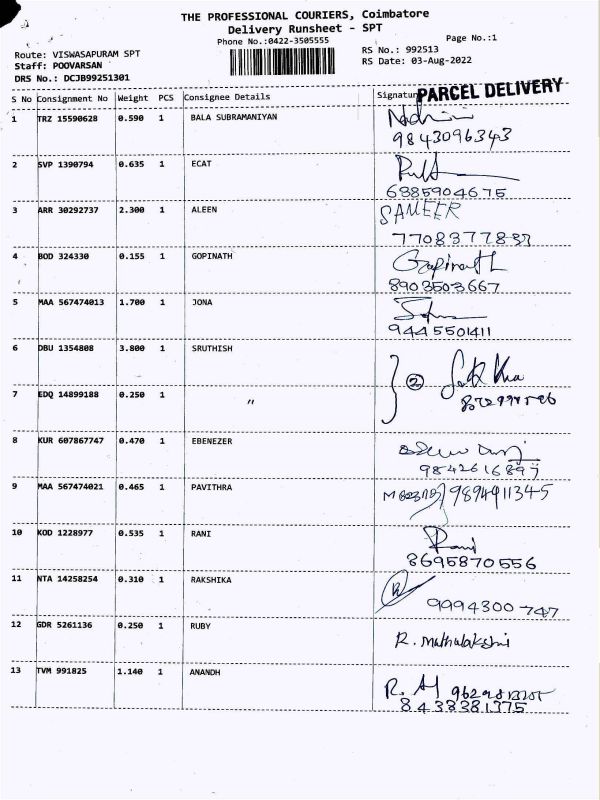 THE PROFESSIONAL COURIERS, Coimbatore
Delivery Runsheet - SPT
Phone No.:0422-3505555
Page No.:1
Route: VISWASAPURAM SPT
RS No.: 992513
Staff: POOVARSAN
RS Date: 03-Aug-2022
DRS No.: DCJB99251301
PARCEL DELIVERY
S No Consignment No Weight PCS Consignee Details
1 TRZ 15590628 0.590 1 BALA SUBRAMANIYAN
9843096343
2 SVP 1390794 0.635 1 ECAT
6385904675
3 ARR 30292737 2.300 1 ALEEN SAMEER
4 BOD 324330 0.155 1 GOPINATH Gopinath
8903503667
5 MAA 567474013 1.700 1 JONA
9445501411
6 DBU 1354808 3.800 1 SRUTHISH
2
7 EDQ 14899188 0.250 1 "
8 KUR 607867747 0.470 1 EBENEZER
9 MAA 567474021 0.465 1 PAVITHRA 9894911345
10 KOD 1228977 0.535 1 RANI Rani
8695870556
11 NTA 14258254 0.310 1 RAKSHIKA
9994300747
12 GDR 5261136 0.250 1 RUBY R. muthulakshmi
13 TVM 991825 1.140 1 ANANDH